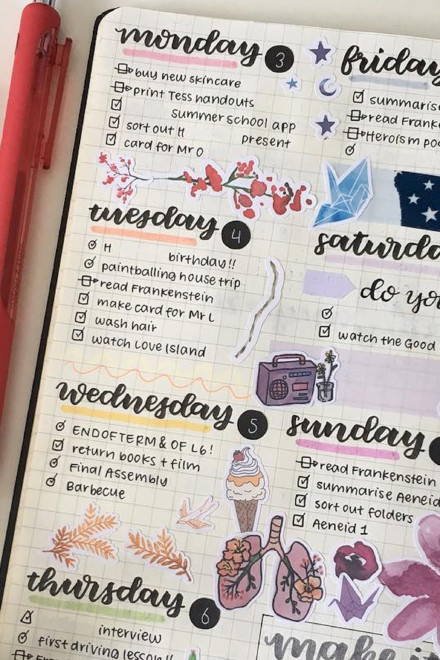 monday 3
buy new skincare
print Tess handouts
summer school app
sort out H present
card for Mr O
tuesday 4
H birthday!!
paintballing house trip
read Frankenstein
make card for Mr L
wash hair
watch Love Island
wednesday 5
END OF TERM & OF L6!
return books + film
Final Assembly
Barbecue
thursday 6
interview
first driving lesson!!
friday
summaris
read Franke
Heroism po
saturda
do yo
watch the Good
sunday
read Frankenstein
summarise Aeneid
sort out folders
Aeneid 1
make it